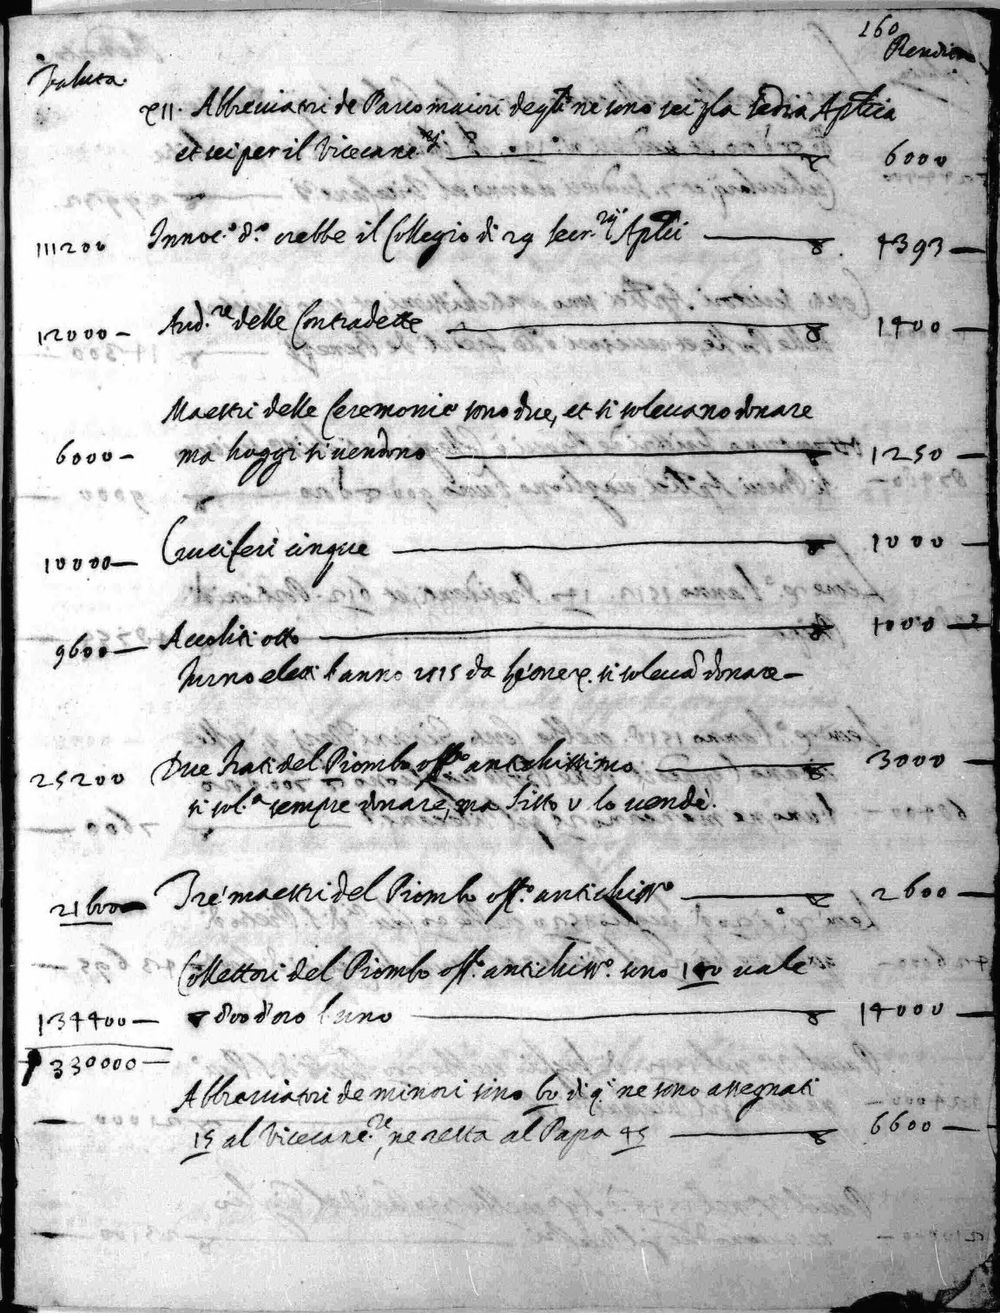 160
Valuta. Rendita
XII. Abbreviatri de Parco maiori de q.li ne sono sei p la sedia Aplica
et sei per il Vicecane.rio 6000
111200 Innoc.o d.o crebbe il Collegio di 29 Secr.rij Aplici 4393 —
12000 — Aud.re delle Contradette 1400 —
Maestri delle Ceremonie sono due, et si solevano donare
6000 — ma hoggi si vendono 1250 —
10000 — Cruciferi cinque 1000 —
9600 — Accoliti otto 1000 —
furno eletti l'anno 1515 da Leone X. si soleva donare —
25200 Due frati del Piombo off.o antichissimo 3000 —
si sol.a sempre donare, ma Sisto V lo vendé.
21600 Tre maestri del Piombo off.o antichiss.o 2600 —
Collettori del Piombo off.o antichiss.o sono 140 vale
134400 — d'oro l'uno 14000 —
330000 —
Abbreviatri de minori sono 60 di q. ne sono assegnati
— 15 al Vicecane.re, ne resta al Papa 45 6600 —